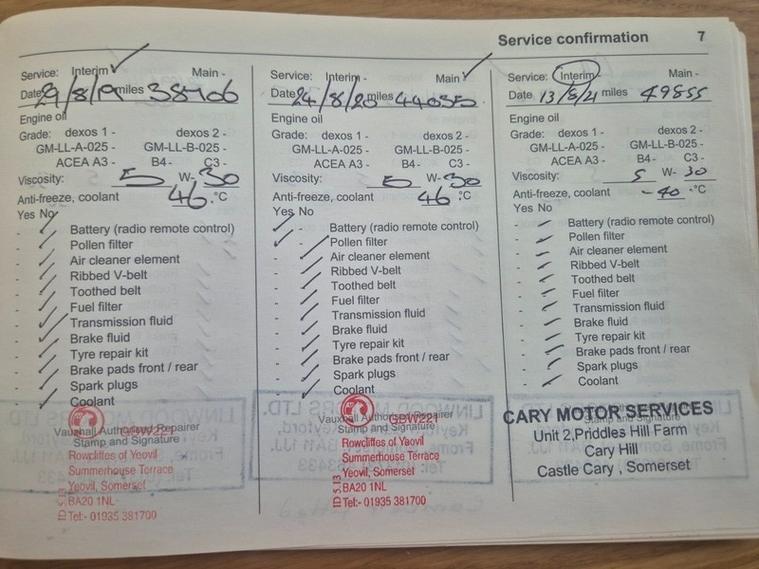 Service confirmation 7
Service: Interim ✓ Main -
Date 29/8/19 miles 38406
Engine oil
Grade: dexos 1 - dexos 2 -
GM-LL-A-025 - GM-LL-B-025 -
ACEA A3 - B4 - C3 -
Viscosity: 5 W- 30
Anti-freeze, coolant 46 °C
Yes No
- ✓ Battery (radio remote control)
- ✓ Pollen filter
- ✓ Air cleaner element
- ✓ Ribbed V-belt
- ✓ Toothed belt
- ✓ Fuel filter
- ✓ Transmission fluid
- ✓ Brake fluid
- ✓ Tyre repair kit
- ✓ Brake pads front / rear
- ✓ Spark plugs
- ✓ Coolant
Vauxhall Authorised Repairer
Stamp and Signature
Rowcliffes of Yeovil
Summerhouse Terrace
Yeovil, Somerset
BA20 1NL
Tel:- 01935 381700
Service: Interim - Main ✓
Date 24/8/20 miles 44035
Engine oil
Grade: dexos 1 - dexos 2 -
GM-LL-A-025 - GM-LL-B-025 -
ACEA A3 - B4 - C3 -
Viscosity: 5 W- 30
Anti-freeze, coolant 46 °C
Yes No
✓ - Battery (radio remote control)
✓ - Pollen filter
- ✓ Air cleaner element
- ✓ Ribbed V-belt
- ✓ Toothed belt
- ✓ Fuel filter
- ✓ Transmission fluid
- ✓ Brake fluid
- ✓ Tyre repair kit
- ✓ Brake pads front / rear
- ✓ Spark plugs
- ✓ Coolant
Vauxhall Authorised Repairer
GBW221
Stamp and Signature
Rowcliffes of Yeovil
Summerhouse Terrace
Yeovil, Somerset
BA20 1NL
Tel:- 01935 381700
Service: Interim - Main -
Date 13/8/21 miles 49855
Engine oil
Grade: dexos 1 - dexos 2 -
GM-LL-A-025 - GM-LL-B-025 -
ACEA A3 - B4 - C3 -
Viscosity: 5 W- 30
Anti-freeze, coolant -40 -°C
Yes No
- ✓ Battery (radio remote control)
- ✓ Pollen filter
- ✓ Air cleaner element
- ✓ Ribbed V-belt
- ✓ Toothed belt
- ✓ Fuel filter
- ✓ Transmission fluid
- ✓ Brake fluid
- ✓ Tyre repair kit
- ✓ Brake pads front / rear
- ✓ Spark plugs
- ✓ Coolant
CARY MOTOR SERVICES
Stamp and Signature
Unit 2,Priddles Hill Farm
Cary Hill
Castle Cary , Somerset